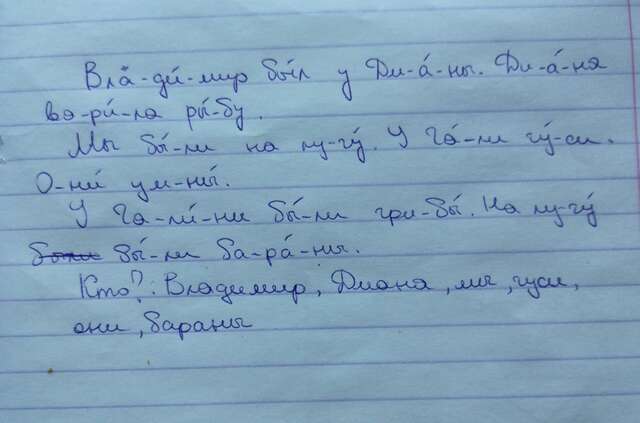 Вла-ди́-мир бы́л у Ди-а́-ны. Ди-а́-на
ва-ри́-ла ры́-бу.
Мы бы́-ли на лу-гу́. У Га́-ли гу́-си.
О-ни́ ум-ны́.
У Га-ли́-ни бы́-ли гри-бы́. На лу-гу́
были бы́-ли ба-ра́-ны.
Кто?: Владимир, Диана, мы, гуси,
они, бараны